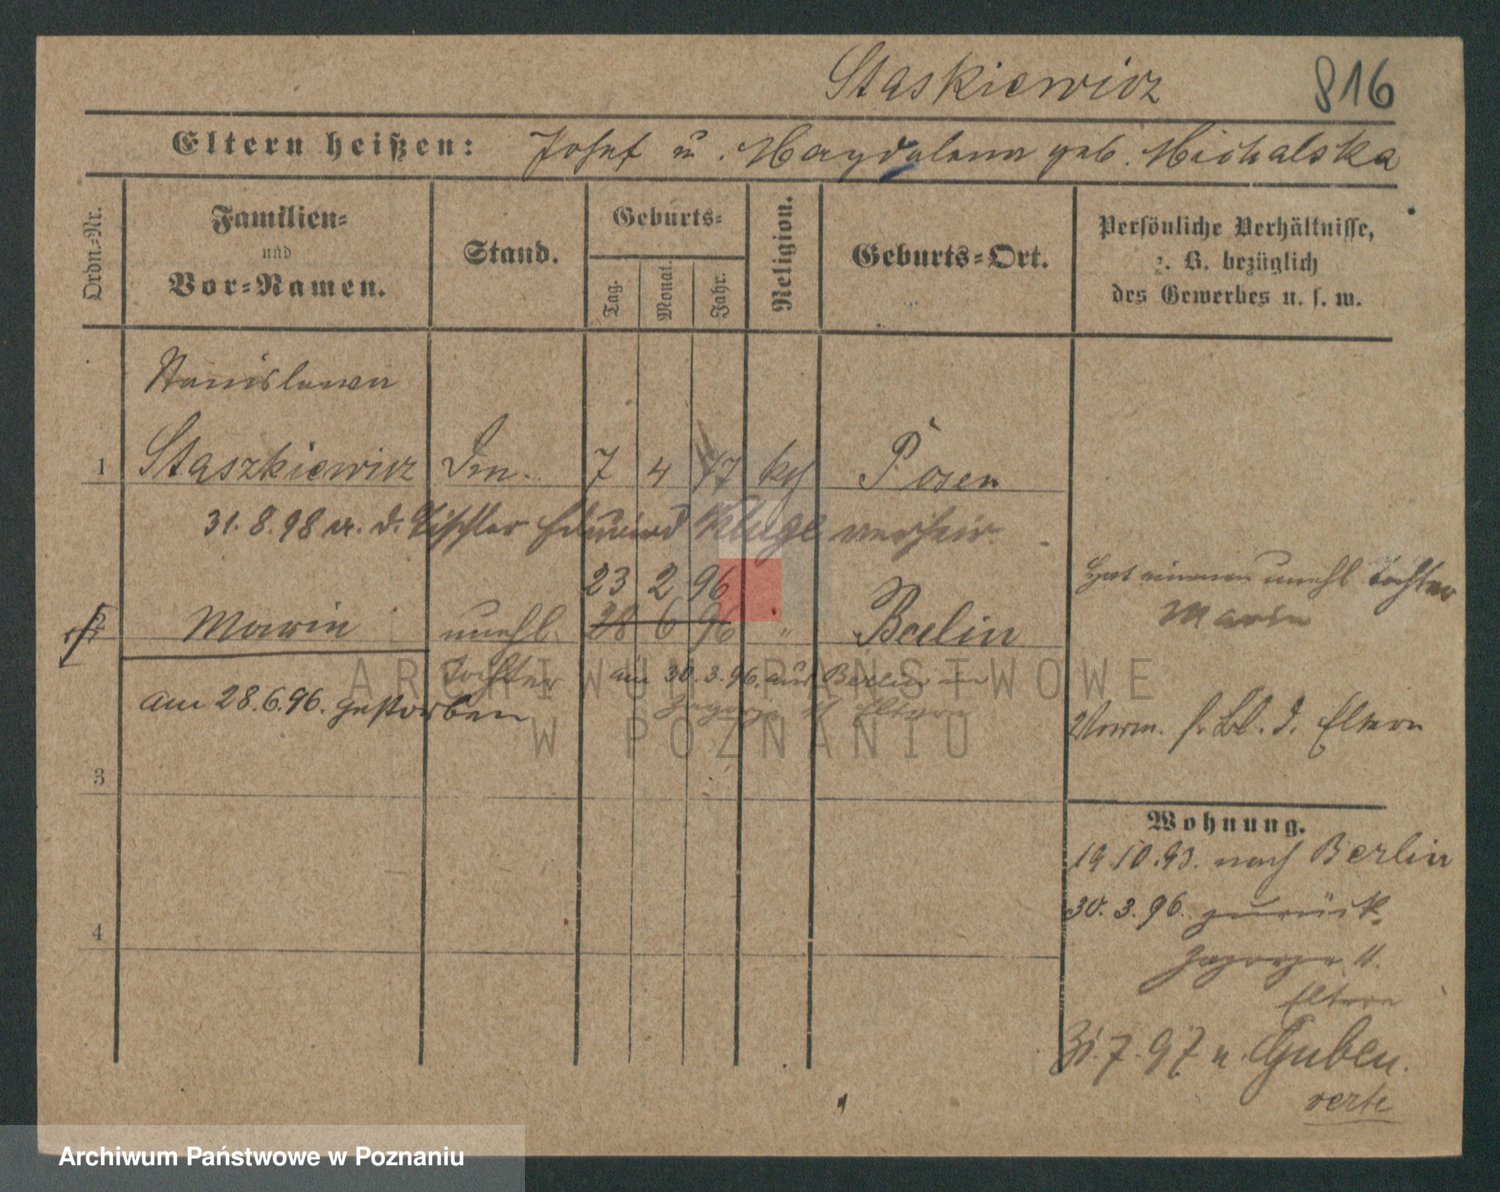 Staskiewicz 816
Eltern heißen: Josef u. Magdalena geb. Michalska
Ordn.-Nr.
Familien-
und
Vor-Namen.
Stand.
Geburts-
Tag.
Monat.
Jahr.
Religion.
Geburts-Ort.
Persönliche Verhältnisse,
z. B. bezüglich
des Gewerbes u. s. w.
Stanislawa
1 Staszkiewicz 7 4 77 kth Posen
31.8.98 m. d. Tischler Eduard Kluge verheir.
23 2 96
Marie unehl. 28 6 96 " Berlin
Tochter am 30.3.96. aus Berlin in
Zagorze 11 Eltern
am 28.6.96. gestorben
Hat einen unehl Tochter
Marie
Vorm. s. Bl. d. Eltern
3
4
Wohnung.
19.10.93. nach Berlin
30.3.96. zurück
Zagorze 11.
Eltern
31.7.97 n. Guben.
verte
ARCHIWUM PAŃSTWOWE
W POZNANIU
Archiwum Państwowe w Poznaniu